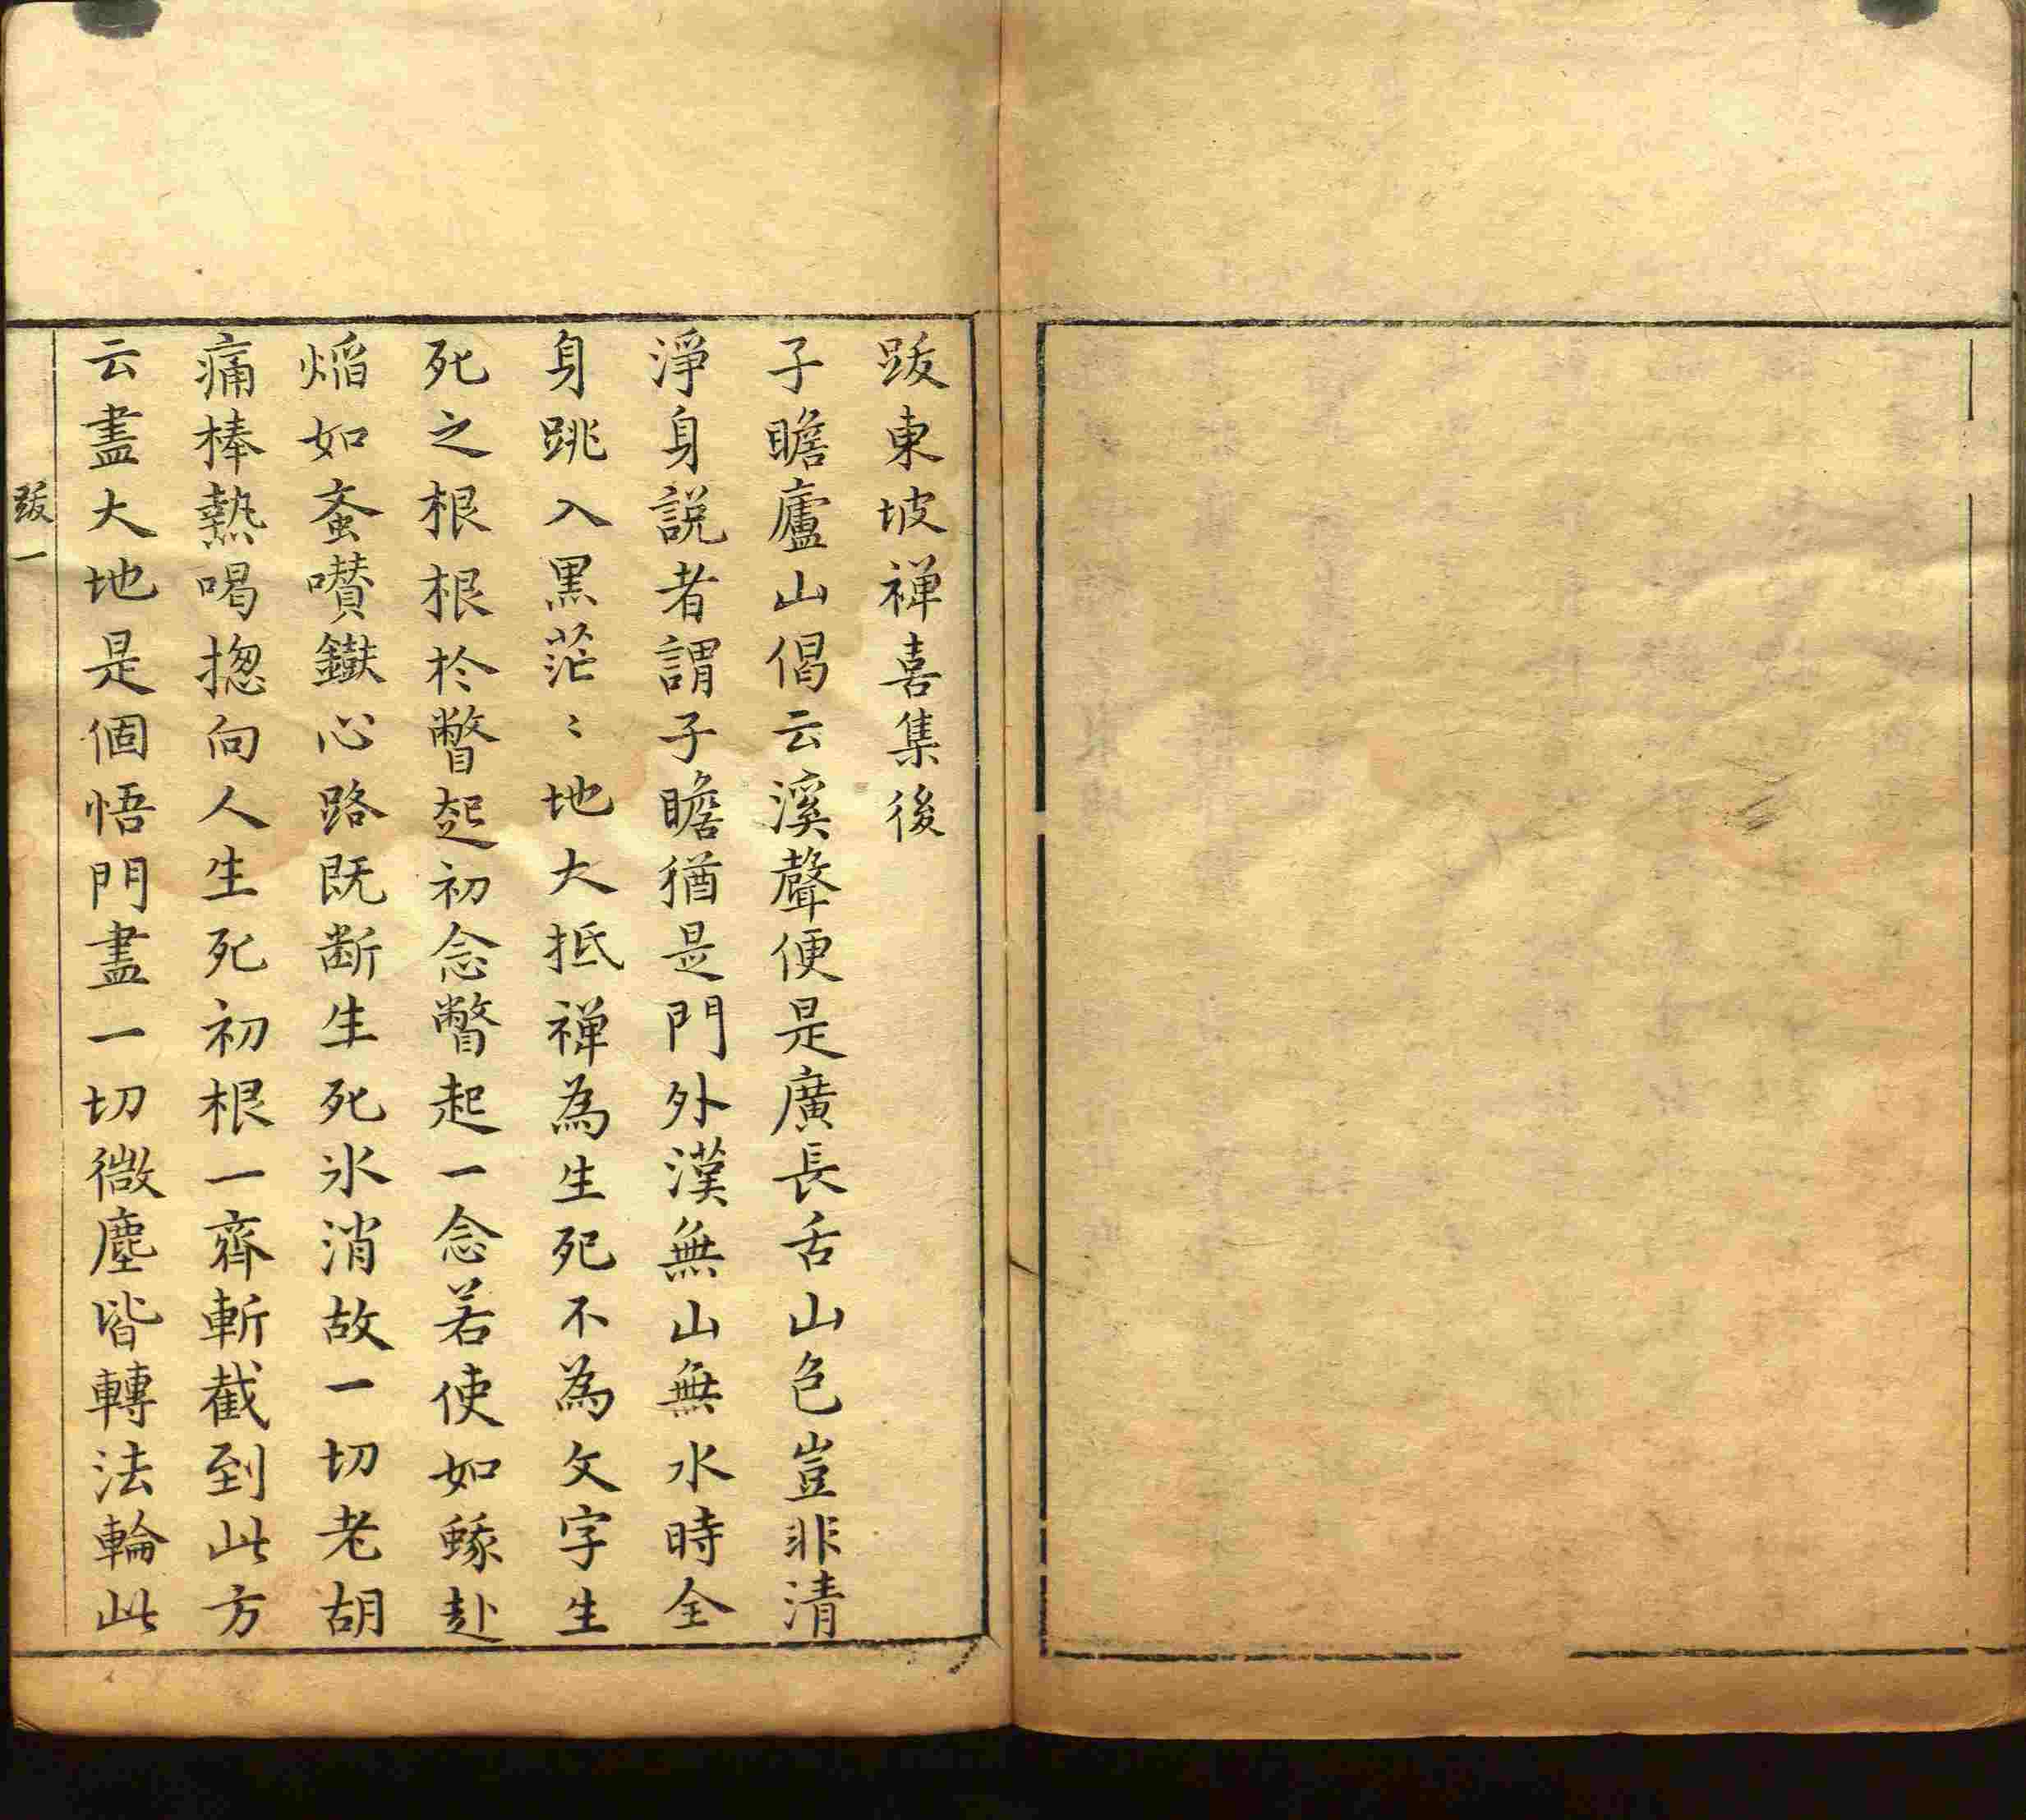 跋東坡禅喜集後
子瞻廬山偈云溪聲便是廣長舌山色豈非清
淨身説者謂子瞻猶是門外漢無山無水時全
身跳入黒茫〻地大抵禅為生死不為文字生
死之根根於瞥起初念瞥起一念若使如蠔赴
焰如蚉囋鐡心路既断生死氷消故一切老胡
痛棒熱喝揔向人生死初根一齊斬截到此方
云盡大地是個悟門盡一切微塵皆轉法輪此
跋一